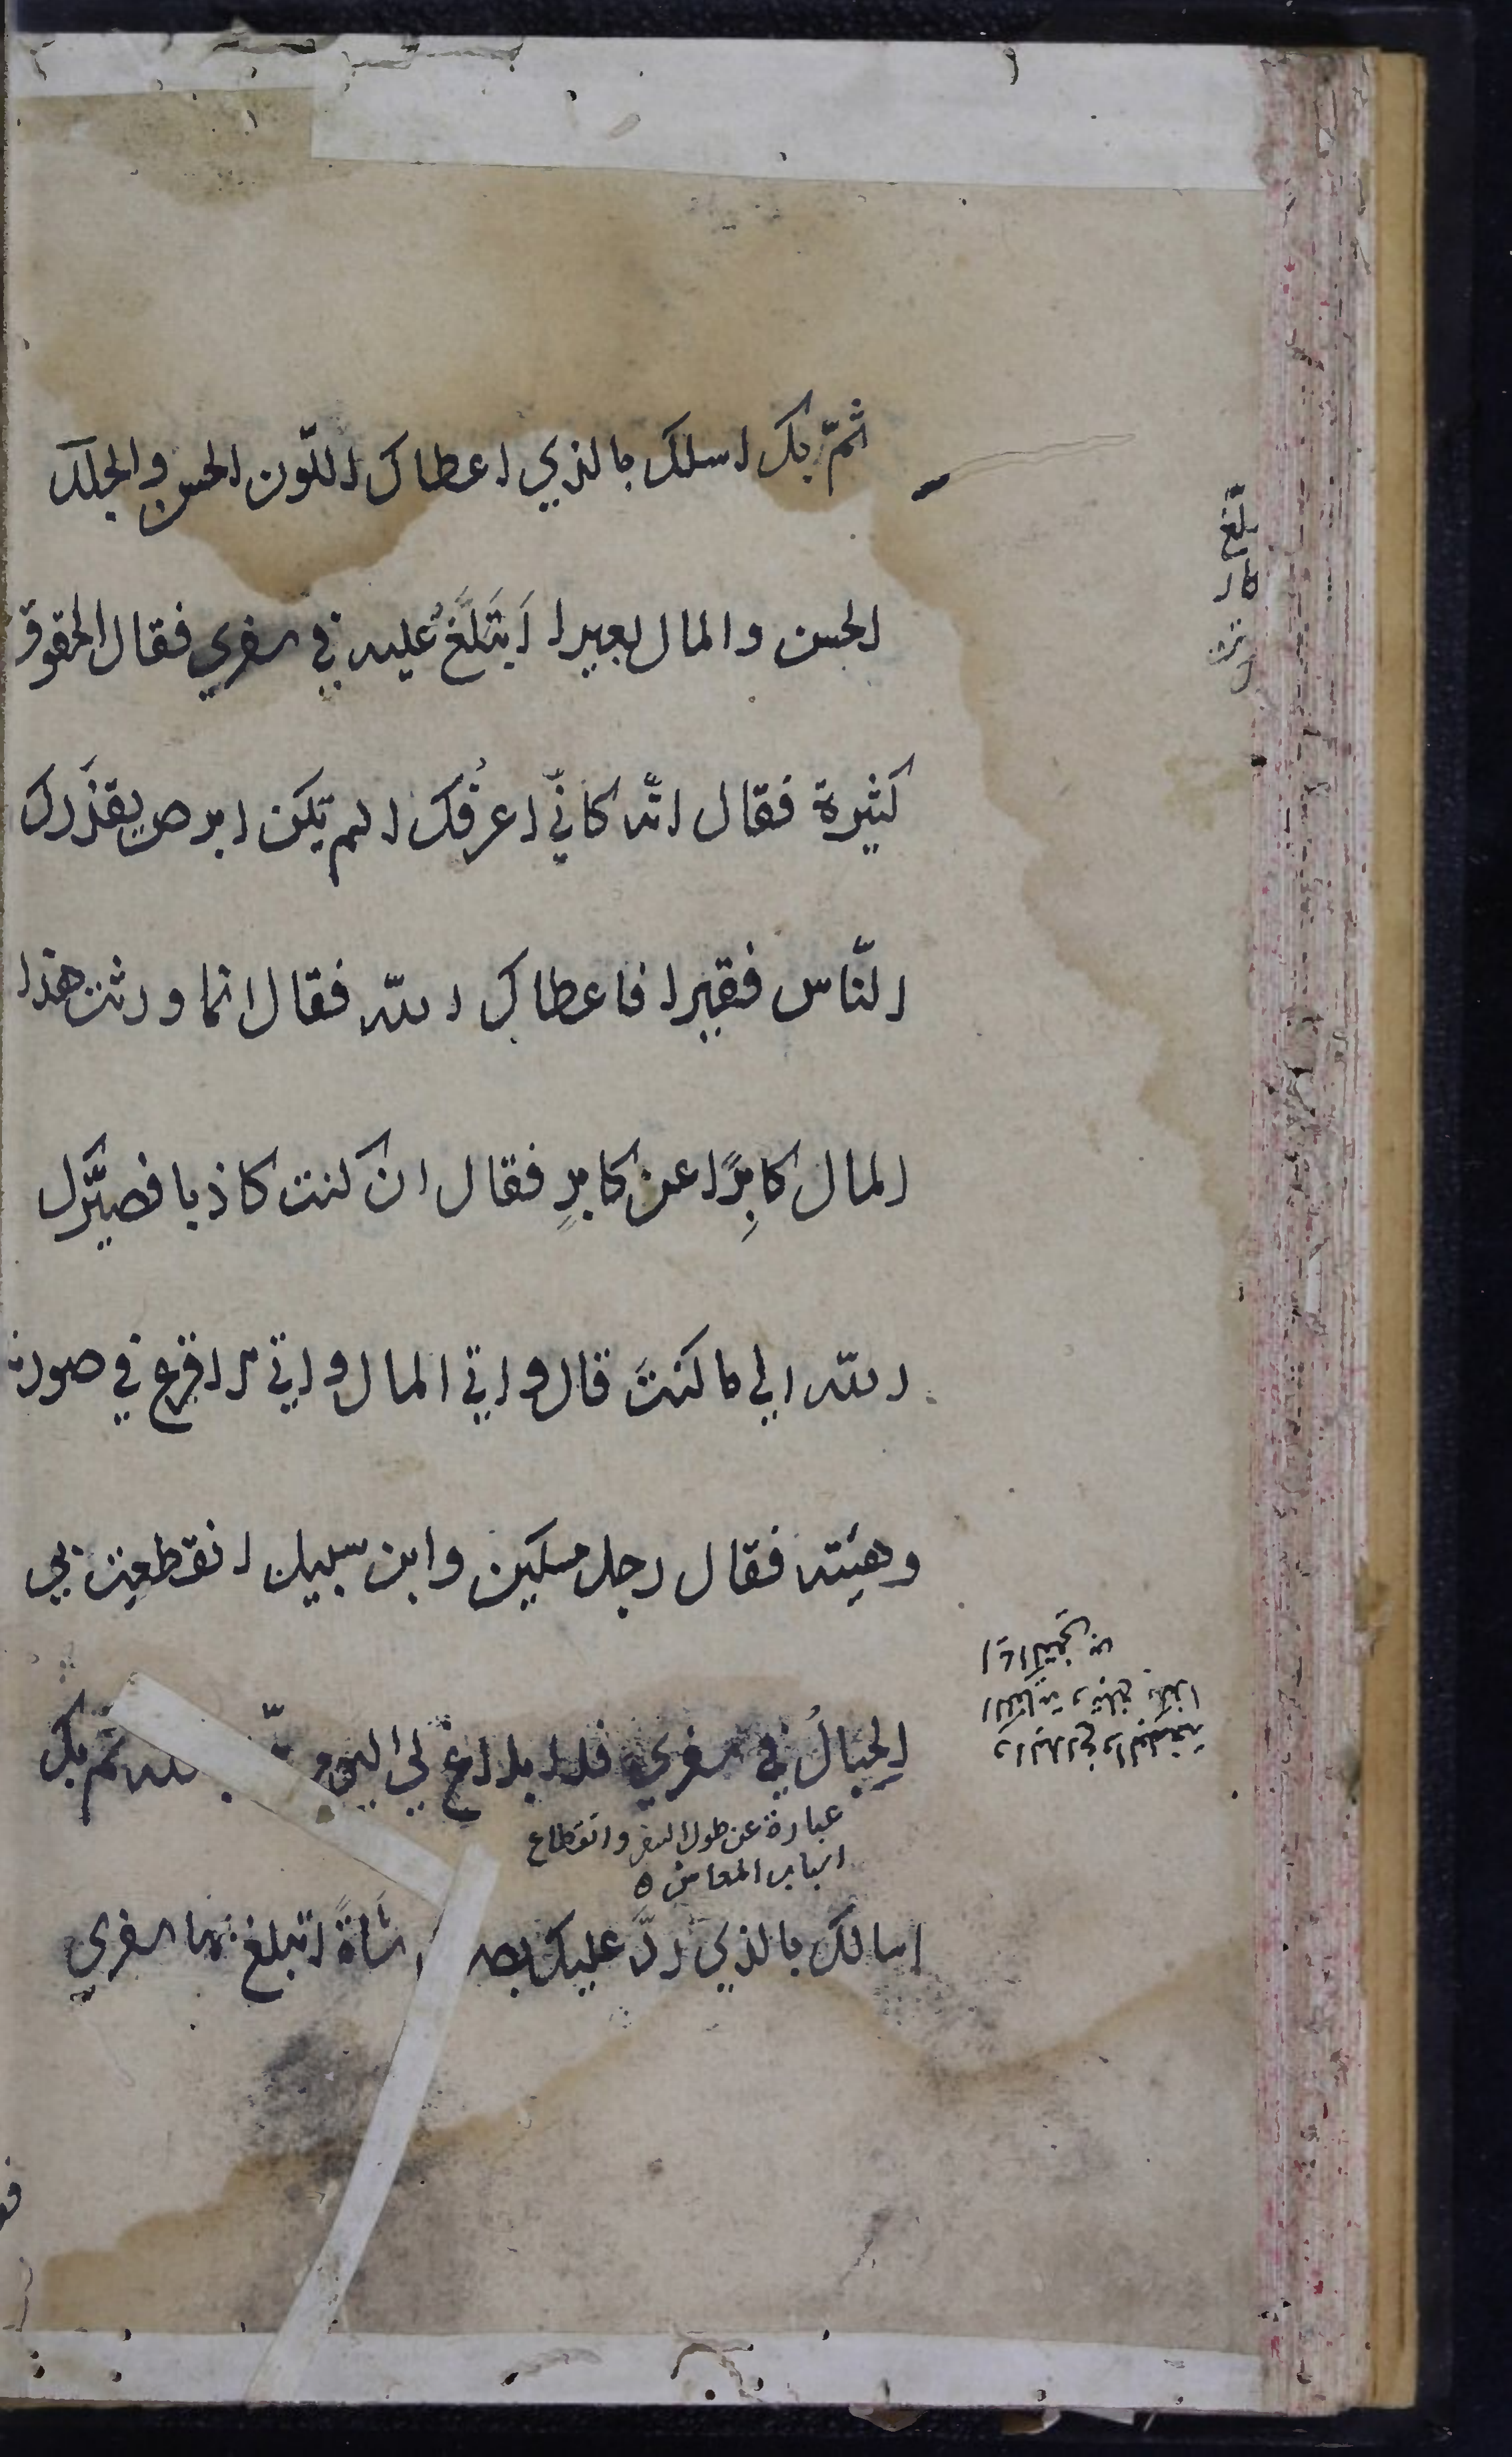 ثمّ بك اسلك بالذي اعطاك اللّون الحسن والجلد
الحسن والمال بعيرا اَتَبَلَّغُ عليه في سفري فقال الحقوق
كثيرة فقال انّه كانّي اعرفُك الم تكن ابرص يقذَرك
النّاس فقيرا فاعطاك اللّه فقال انما ورثت هذا
المال كابِرًا عن كابرٍ فقال ان كنت كاذبا فصيَّرك
اللّه الي ما كنتَ قال واتي المال واتي الاقرع في صورته
وهيئته فقال رجل مسكين وابن سبيل انقطعت بي
الحِبالُ في سفري فلا بلاغ لي اليوم الّا باللّه ثمّ بك
عبارة عن طول السفر وانقطاع
اسباب المعاش ه
اسالك بالذي ردّ عليك بصرك شاةً اتبلغ بها سفري
بلّغ
والبلاغ والبلغة
الكفاية وتبلغ بكذا
اي اكتفي به